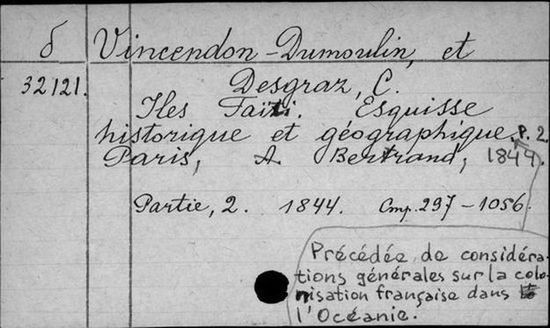 δ Vincendon-Dumoulin, et
32121. Desgraz, C.
Iles Taïti. Esquisse
historique et géographique. P. 2
Paris, A Bertrand, 1844.
Partie, 2. 1844. Cmp. 297-1056.
Précédée de considéra-
tions générales sur la colo-
nisation française dans
l'Océanie.